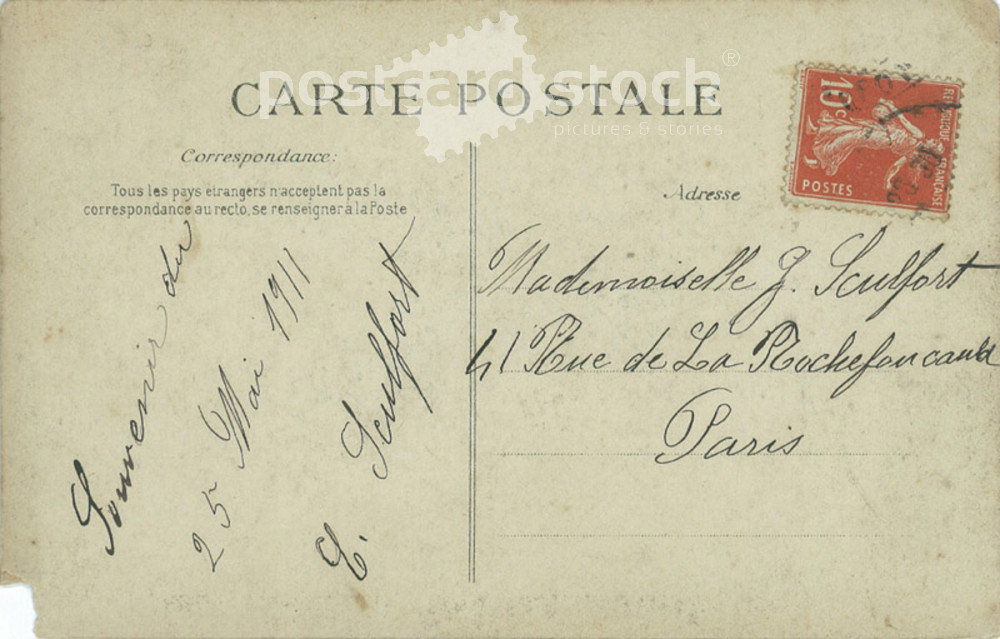 CARTE POSTALE
postcard stock ®
pictures & stories
Correspondance:
Tous les pays etrangers n'acceptent pas la
correspondance au recto, se renseigner a la Poste
Souvenir du
25 Mai 1911
E. Sculfort
Adresse
REPUBLIQUE FRANÇAISE
10c
POSTES
Mademoiselle J. Sculfort
41 Rue de La Rochefoucauld
Paris